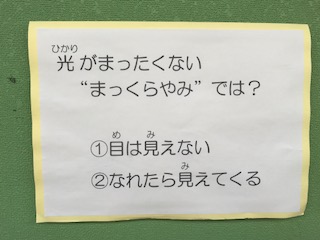 光がまったくない
“まっくらやみ”では？
①目は見えない
②なれたら見えてくる